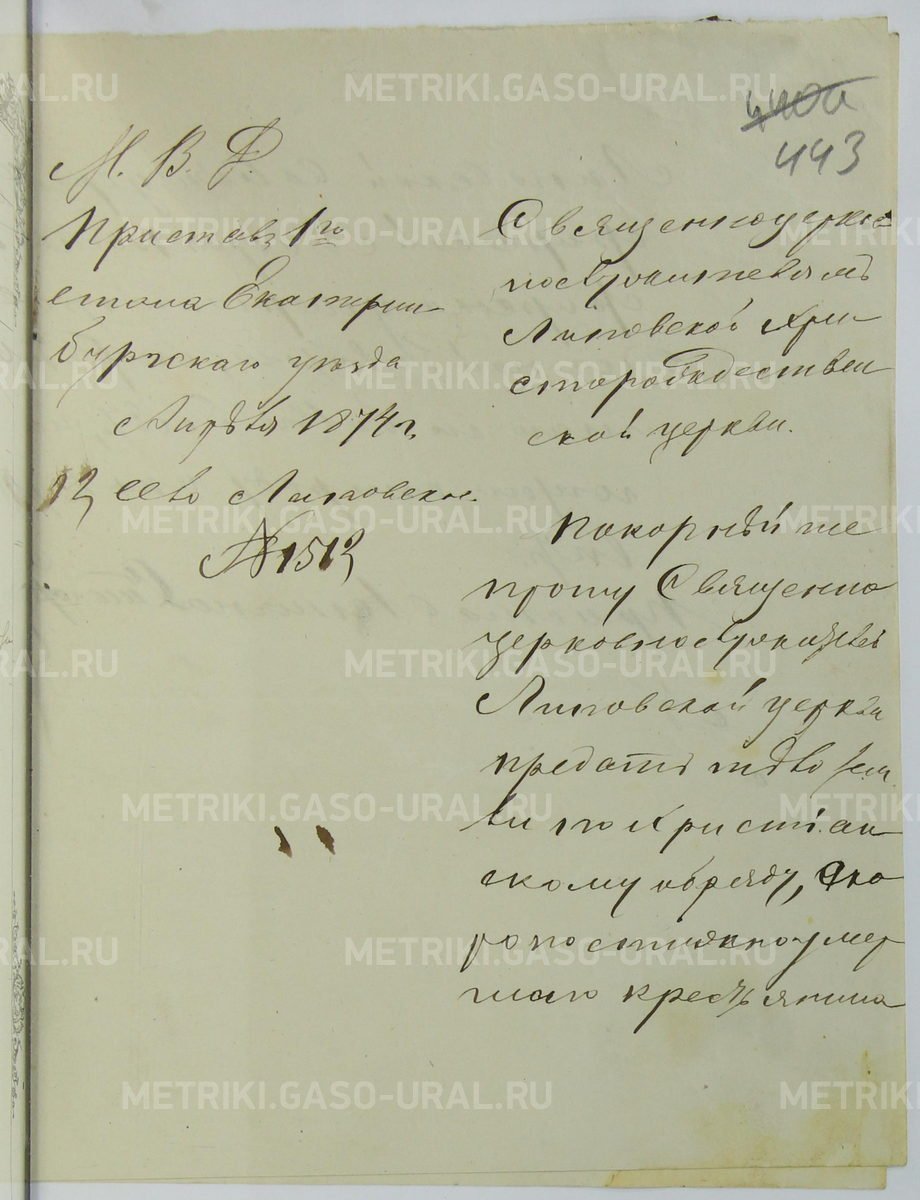 443
М. В. Д.
Приставъ 1го
стана Екатерин
бургскаго уѣзда
Апрѣля 1874 г.
12, село Липовское.
№ 1512
Священноцерко
нослужителямъ
Липовской Хри
сторождествен
ской церкви.
Покорнѣйше
прошу Священно
церковнослужителей
Липовской церкви
предать тѣло зем
ли по христіан
скому обряду, ско
ропостижно умер
шаго крестьянина
METRIKI.GASO-URAL.RU